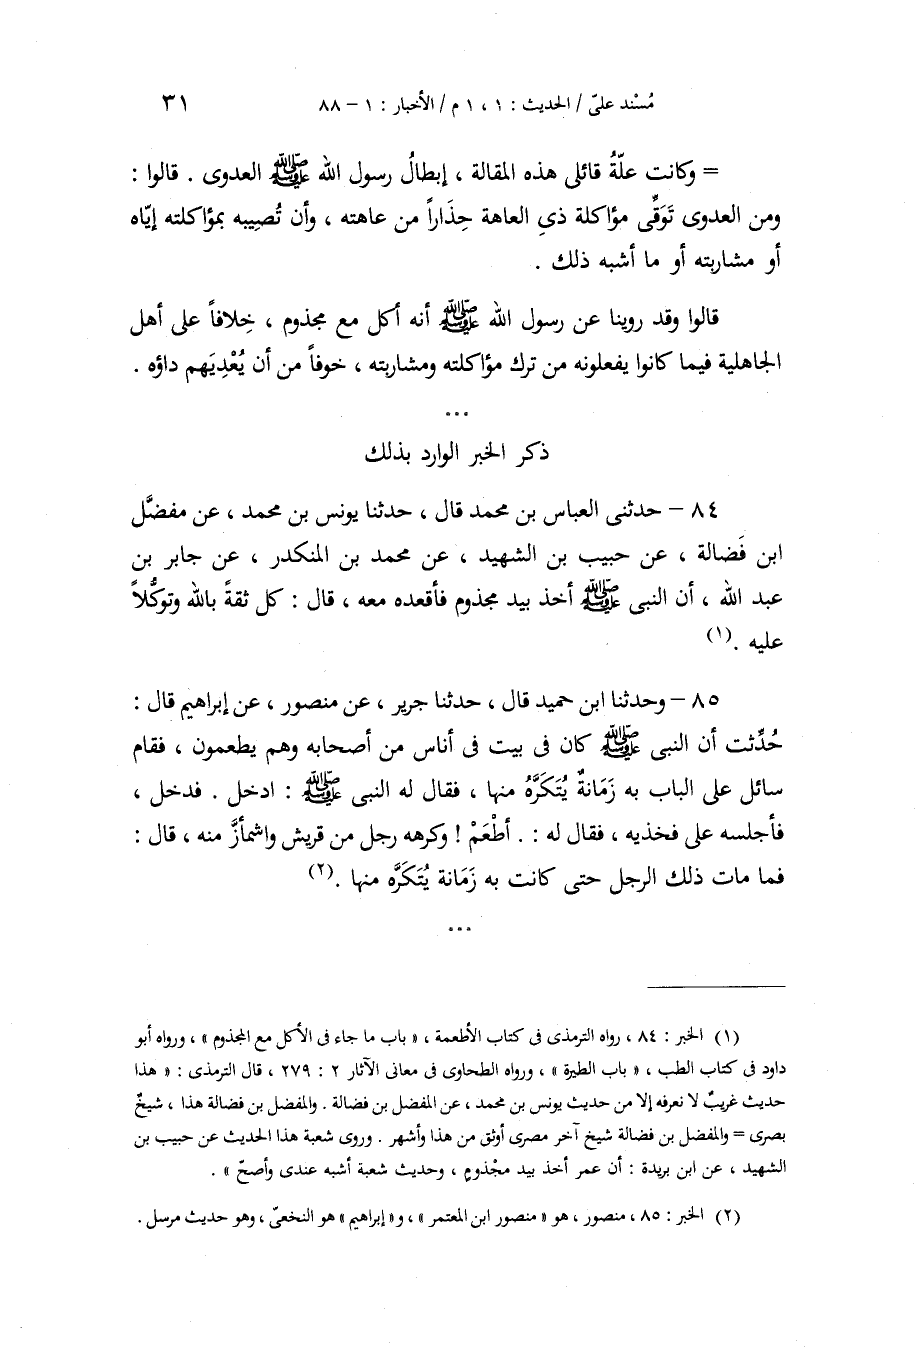 مُسْند علىّ / الحديث : ١ ، ١ م / الأخبار : ١ – ٨٨ ٣١
= وكانت علّةُ قائلى هذه المقالة ، إبطالُ رسول الله ﷺ العدوى . قالوا :
ومن العدوى تَوَقِّى مؤاكلة ذي العاهة حِذَاراً من عاهته ، وأن تُصِيبه بمؤاكلته إيّاه
أو مشاربته أو ما أشبه ذلك .
قالوا وقد روينا عن رسول الله ﷺ أنه أكل مع مجذوم ، خِلافاً على أهل
الجاهلية فيما كانوا يفعلونه من ترك مؤاكلته ومشاربته ، خوفاً من أن يُعْدِيَهم داؤه .
...
ذكر الخبر الوارد بذلك
٨٤ – حدثنى العباس بن محمد قال ، حدثنا يونس بن محمد ، عن مفضَّل
ابن فَضالة ، عن حبيب بن الشهيد ، عن محمد بن المنكدر ، عن جابر بن
عبد الله ، أن النبى ﷺ أخذ بيد مجذوم فأقعده معه ، قال : كل ثقةً بالله وتوكُّلاً
عليه .(١)
٨٥ – وحدثنا ابن حميد قال ، حدثنا جرير ، عن منصور ، عن إبراهيم قال :
حُدِّثت أن النبى ﷺ كان فى بيت فى أناس من أصحابه وهم يطعمون ، فقام
سائل على الباب به زَمَانةٌ يُتَكَرَّهُ منها ، فقال له النبى ﷺ : ادخل . فدخل ،
فأجلسه على فخذيه ، فقال له : . أطْعَمْ ! وكرهه رجل من قريش واشمأزَّ منه ، قال :
فما مات ذلك الرجل حتى كانت به زَمَانة يُتَكَرَّه منها .(٢)
...
(١) الخبر : ٨٤ ، رواه الترمذى فى كتاب الأطعمة ، « باب ما جاء فى الأكل مع المجذوم » ، ورواه أبو
داود فى كتاب الطب ، « باب الطيرة » ، ورواه الطحاوى فى معانى الآثار ٢ : ٢٧٩ ، قال الترمذى : « هذا
حديث غريبٌ لا نعرفه إلا من حديث يونس بن محمد ، عن المفضل بن فضالة . والمفضل بن فضالة هذا ، شيخٌ
بصرى = والمفضل بن فضالة شيخ آخر مصرى أوثق من هذا وأشهر . وروى شعبة هذا الحديث عن حبيب بن
الشهيد ، عن ابن بريدة : أن عمر أخذ بيد مجْذومٍ ، وحديث شعبة أشبه عندى وأصحّ » .
(٢) الخبر : ٨٥ ، منصور ، هو « منصور ابن المعتمر » ، و« إبراهيم » هو النخعىّ ، وهو حديث مرسل .